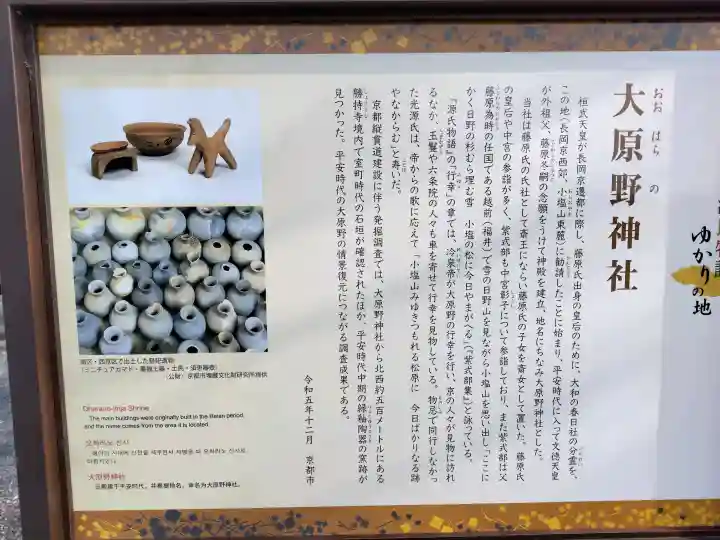 ゆかりの地
大原野神社
おおはらの
桓武天皇が長岡京遷都に際し、藤原氏出身の皇后のために、大和の春日社の分霊を、
この地(長岡京西郊、小塩山東麓)に勧請したことに始まり、平安時代に入って文徳天皇
が外祖父、藤原冬嗣の念願をうけて神殿を建立、地名にちなみ大原野神社とした。
当社は藤原氏の氏社として斎王にならい藤原氏の子女を斎女として置いた。藤原氏
の皇后や中宮の参詣が多く、紫式部も中宮彰子について参詣しており、また紫式部は父
藤原為時の任国である越前(福井)で雪の日野山を見ながら小塩山を思い出し「ここに
かく日野の杉むら埋む雪 小塩の松に今日やまがへる」(『紫式部集』)と詠っている。
『源氏物語』の「行幸」の章では、冷泉帝が大原野の行幸を行い、京の人々が見物に訪れ
るなか、玉鬘や六条院の人々も車を寄せて行幸を見物している。物忌で同行しなかっ
た光源氏は、帝からの歌に応えて「小塩山みゆきつもれる松原に 今日ばかりなる跡
やなからむ」と寿いだ。
京都縦貫道建設に伴う発掘調査では、大原野神社から北西約五百メートルにある
勝持寺境内で室町時代の石垣が確認されたほか、平安時代中期の緑釉陶器の窯跡が
見つかった。平安時代の大原野の情景復元につながる調査成果である。
令和五年十二月 京都市
南区・西京区で出土した祭祀遺物
(ミニチュアカマド・墨描土器・土馬・須恵器壺)
公財)京都市埋蔵文化財研究所提供
Oharano-jinja Shrine
The main buildings were originally built in the Heian period,
and the name comes from the area it is located.
오하라노 신사
大原野神社